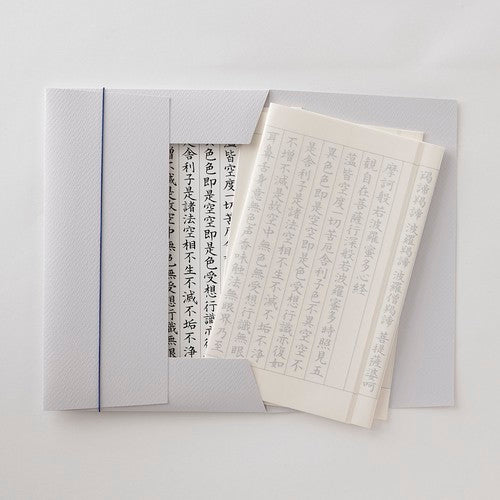 羯諦 波羅羯諦 波羅僧羯諦 菩提薩婆呵
摩訶般若波羅蜜多心経
観自在菩薩行深般若波羅蜜多時照見五
蘊皆空度一切苦厄舎利子色不異空空不
異色色即是空空即是色受想行識亦復如
是舎利子是諸法空相不生不滅不垢不浄
不増不減是故空中無色無受想行識無眼
耳鼻舌身意無色声香味触法無眼界乃至
蘊皆空度一切苦厄
色色即是空空即是色受想行識亦復如
舎利子是諸法空相不生不滅不垢不浄
不減是故空中無色無受想行識無眼